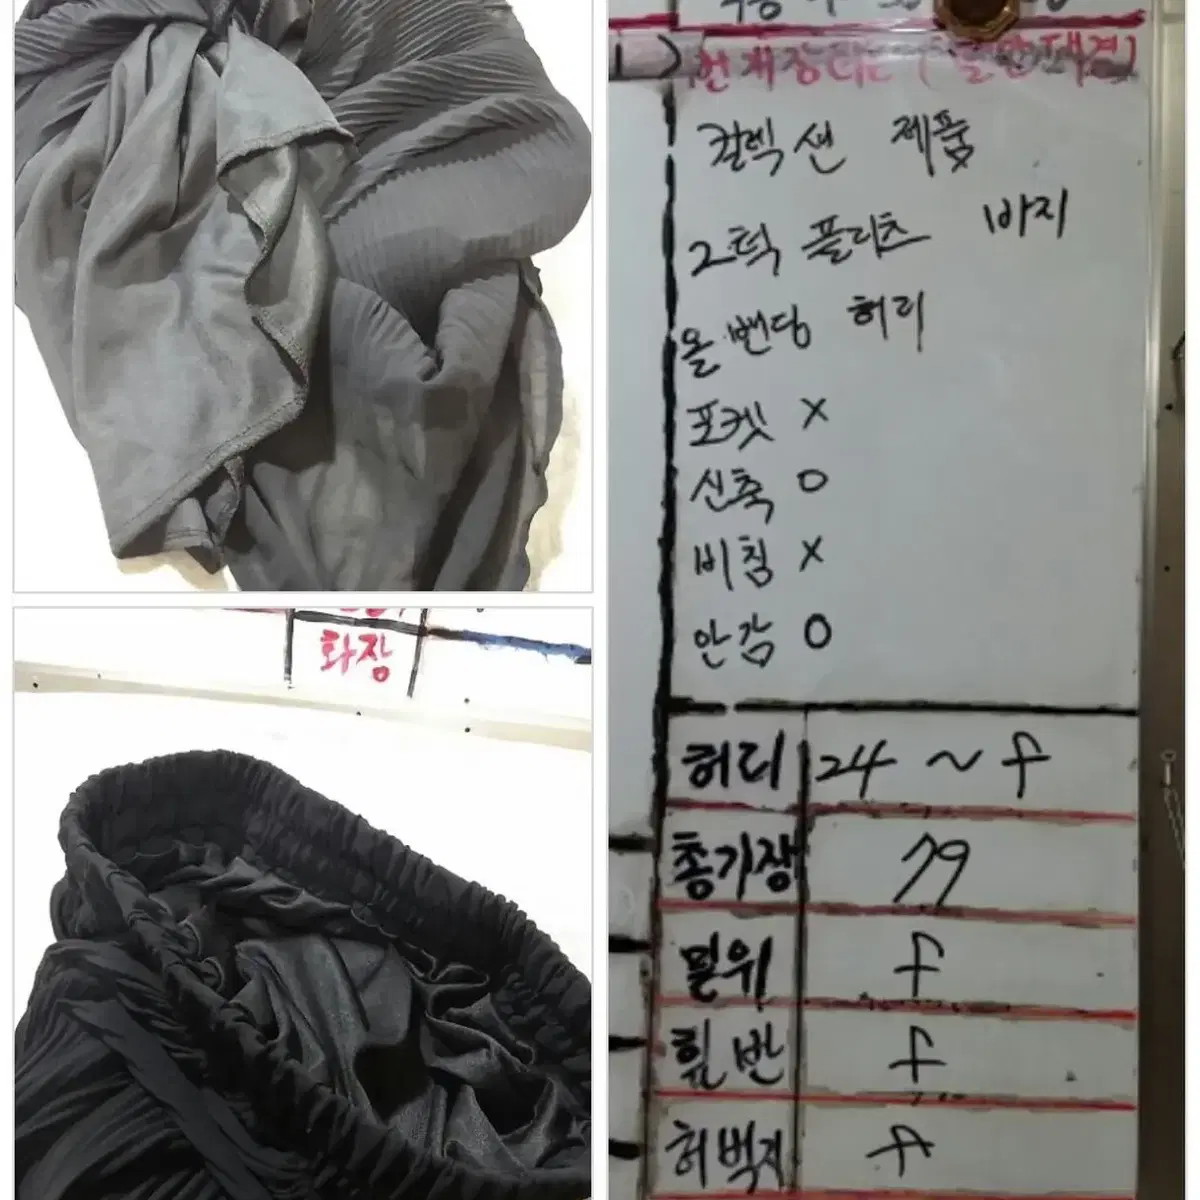 화장
컬렉션 제품
2턱 플리츠 바지
올 밴딩 허리
포켓 X
신축 O
비침 X
안감 O
허리 24 ~ f
총기장 79
밑위 f
힙 반 f
허벅지 f